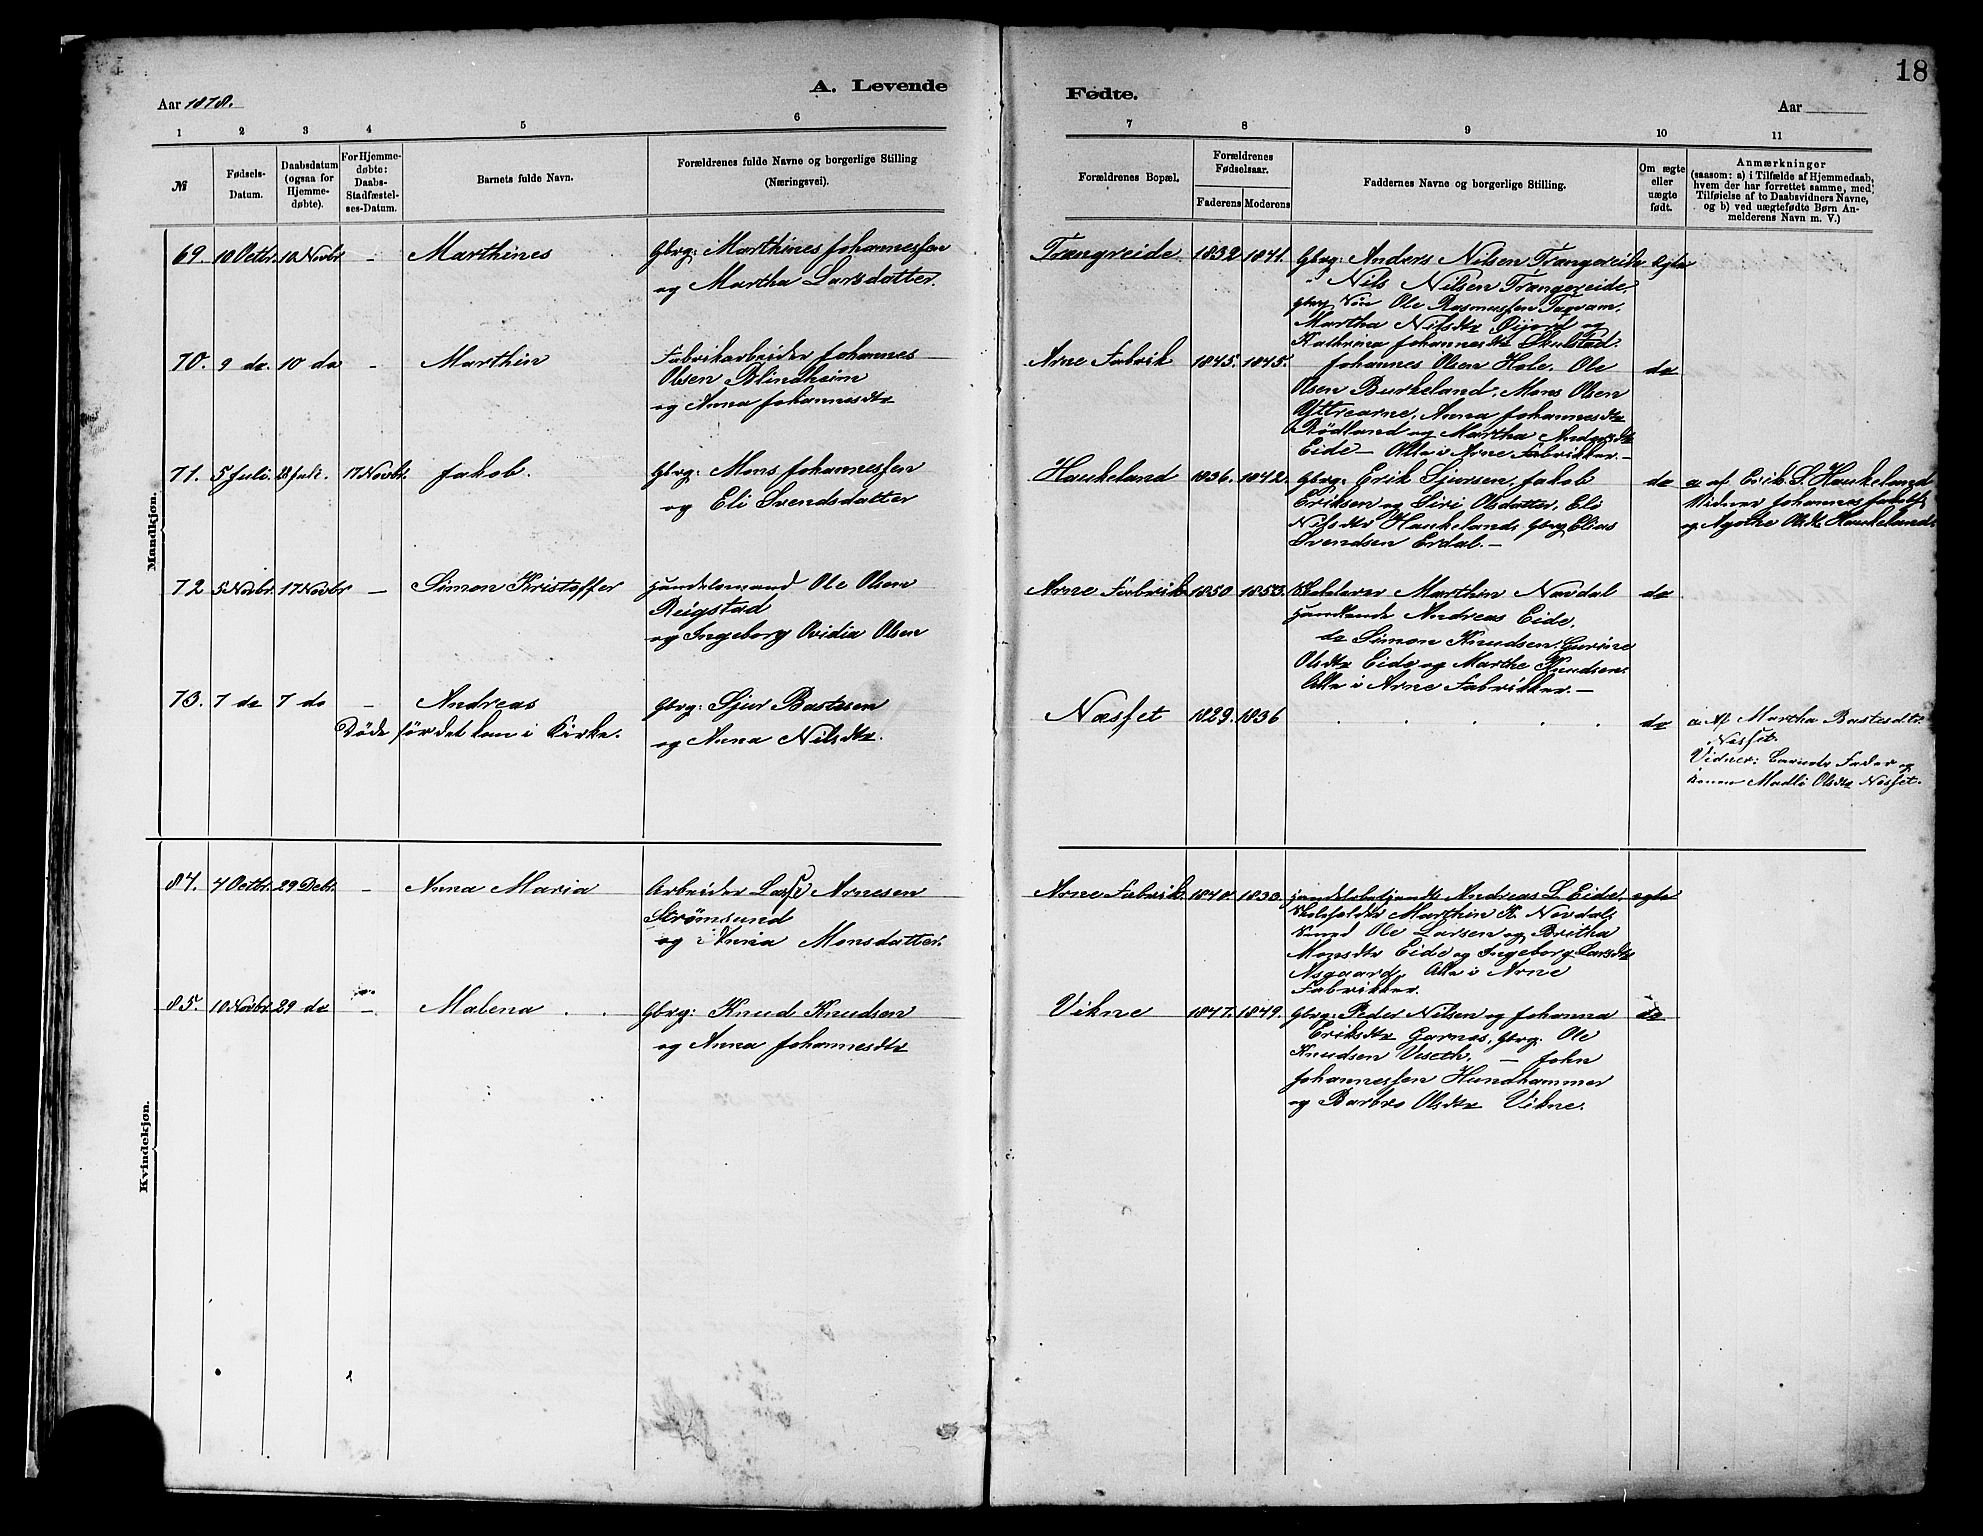 18
Aar 1878.
A. Levende
Fødte.
Aar
1
2
3
4
5
6
7
8
9
10
11
№
Fødsels-
Datum.
Daabsdatum
(ogsaa for
Hjemme-
døbte).
For Hjemme-
døbte:
Daabs-
Stadfæstel-
ses-Datum.
Barnets fulde Navn.
Forældrenes fulde Navne og borgerlige Stilling
(Næringsvei).
Forældrenes Bopæl.
Forældrenes
Fødselsaar.
Faderens
Moderens
Faddernes Navne og borgerlige Stilling.
Om ægte
eller
uægte
født.
Anmærkninger
(saasom: a) i Tilfælde af Hjemmedaab,
hvem der har forrettet samme, med
Tilføielse af to Daabsvidners Navne,
og b) ved uægtefødte Børn An-
melderens Navn m. V.)
Mandkjøn.
69. 10 Octbr. 10 Novbr. - Marthines Gbrg: Marthines Johannessen
og Martha Larsdatter.
Trængreide 1832 1841. Gbrg: Anders Nilsen Trængereide Egte
" Nils Nilsen Trængereide,
Gbrg Ole Rasmussen
Martha Nilsdtr og
Kathrina Johannesdtr Skulstad.
70. 9 do. 10 do - Marthin Fabrikarbeider Johannes
Olsen Blindheim
og Anna Johannesdtr
Arne Fabrik 1845. 1845. Johannes Olsen Hole. Ole do
Olsen Burkeland, Mons Olsen
Yttrearne, Anna Johannesdtr
Rødland og Martha Andersdtr
Eide - Alle i Arne Fabrikker. -
71. 5 Juli. 28 Juli. 17 Novbr. Jakob. Gbrg: Mons Johannessen
og Eli Svendsdatter
Haukeland 1836. 1842. Gbrg: Erik Sjursen, Jakob do a af Erik S. Haukeland
Eriksen og Siri Olsdatter, Eli Vidner Johannes Jakobs.
Nilsdtr Haukeland, Gbrg Elias og Agathe Olsdtr Haukeland.
Svendsen Erdal. -
72 5 Novbr. 17 Novbr - Simon Kristoffer Handelsmand Ole Olsen
Reigstad
og Ingeborg Ovidia Olsen
Arne Fabrik 1850. 1853. Marthin Navdal do
Andreas Eide,
do Simon Knudsen, Gurine
Olsdtr Eide og Marthe Knudsen.
Alle i Arne Fabrikker. -
73. 7 do 7 do - Andreas Gbrg: Sjur Bastesen
Døde før det kom i Kirke. og Anna Nilsdtr.
Næsset 1829. 1836 do a Af Martha Bastesdtr.
Næsset.
Vidner: Barnets Fader og
Madli Olsdtr Næsset.
Kvindekjøn.
84. 4 Octbr. 29 Debr. - Anna Maria Arbeider Lasse Arnesen
Strømsund
og Anna Monsdatter.
Arne Fabrik. 1840. 1830. Handelsbetjent Andreas L. Eide, egte
Marthin K. Navdal,
Ole Larsen og Britha
Monsdtr Eide og Ingeborg Larsdtr
Asgaard, Alle i Arne
Fabrikker.
85. 10 Novbr. 29 do - Malena Gbrg: Knud Knudsen
og Anna Johannesdtr
Vikne 1847. 1849. Gbrg: Peder Nilsen og Johanna do
Eriksdtr Garnæs, Gbrg: Ole
Knudsen Viseth, - John
Johannessen Hundhammer
og Barbro Olsdtr Vikne.